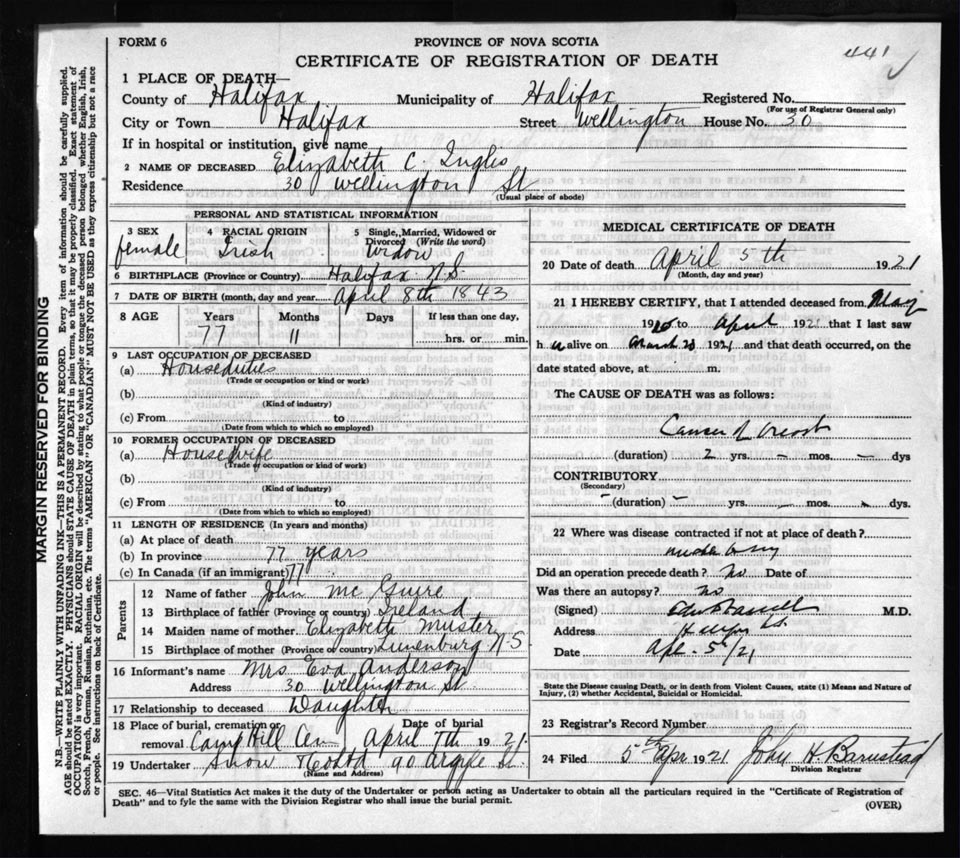 FORM 6
PROVINCE OF NOVA SCOTIA
441 ✓
CERTIFICATE OF REGISTRATION OF DEATH
1 PLACE OF DEATH—
County of Halifax Municipality of Halifax Registered No.
(For use of Registrar General only)
City or Town Halifax Street Wellington House No. 30
If in hospital or institution, give name
2 NAME OF DECEASED Elizabeth C. Ingles
Residence 30 Wellington St
(Usual place of abode)
PERSONAL AND STATISTICAL INFORMATION
3 SEX 4 RACIAL ORIGIN 5 Single, Married, Widowed or Divorced (Write the word)
female Irish Widow
6 BIRTHPLACE (Province or Country) Halifax N.S.
7 DATE OF BIRTH (month, day and year) April 8th 1843
8 AGE Years Months Days If less than one day,
77 11 hrs. or min.
9 LAST OCCUPATION OF DECEASED
(a) Houseduties
(Trade or occupation or kind or work)
(b)
(Kind of industry)
(c) From to
(Date from which to which so employed)
10 FORMER OCCUPATION OF DECEASED
(a) Housewife
(Trade or occupation or kind of work)
(b)
(Kind of industry)
(c) From to
(Date from which to which so employed)
11 LENGTH OF RESIDENCE (In years and months)
(a) At place of death
(b) In province 77 years
(c) In Canada (if an immigrant) 77
Parents
12 Name of father John Mc Guire
13 Birthplace of father (Province or country) Ireland
14 Maiden name of mother Elizabeth Muster
15 Birthplace of mother (Province or country) Lunenburg N.S.
16 Informant's name Mrs. Eva Anderson
Address 30 Wellington St.
17 Relationship to deceased Daughter
18 Place of burial, cremation or removal Camp Hill Cem Date of burial April 7th 1921.
19 Undertaker Snow & Co Ltd 90 Argyle St.
(Name and Address)
MEDICAL CERTIFICATE OF DEATH
20 Date of death April 5th 1921
(Month, day and year)
21 I HEREBY CERTIFY, that I attended deceased from May
19 to April 1921 that I last saw
h alive on March 20 1921 and that death occurred, on the
date stated above, at m.
The CAUSE OF DEATH was as follows:
Cancer of breast
(duration) 2 yrs. – mos. – dys
CONTRIBUTORY
(Secondary)
(duration) – yrs. – mos. – dys.
22 Where was disease contracted if not at place of death?
Did an operation precede death? No Date of
Was there an autopsy? no
(Signed) M.D.
Address
Date Apl. 5th/21
State the Disease causing Death, or in death from Violent Causes, state (1) Means and Nature of
Injury, (2) whether Accidental, Suicidal or Homicidal.
23 Registrar's Record Number
24 Filed 5th Apr 1921 John H. Barnstead
Division Registrar
SEC. 46—Vital Statistics Act makes it the duty of the Undertaker or person acting as Undertaker to obtain all the particulars required in the "Certificate of Registration of
Death" and to fyle the same with the Division Registrar who shall issue the burial permit.
(OVER)
MARGIN RESERVED FOR BINDING
N.B.—WRITE PLAINLY WITH UNFADING INK—THIS IS A PERMANENT RECORD. Every item of information should be carefully supplied.
AGE should be stated EXACTLY. PHYSICIANS should STATE CAUSE OF DEATH in plain terms, so that it may be properly classified. Exact statement of
OCCUPATION is very important. RACIAL ORIGIN will be described by stating to what people or tongue the deceased person belonged whether English, Irish,
Scotch, French, German, Russian, Ruthenian, etc. The terms "AMERICAN" OR "CANADIAN" MUST NOT BE USED as they express citizenship but not a race
or people. See instructions on back of Certificate.